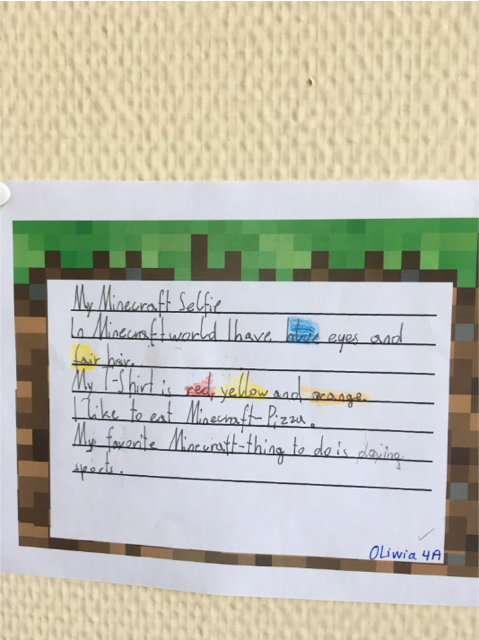 My Minecraft Selfie
In Minecraft world I have blue eyes and
fair hair.
My T-Shirt is red, yellow and orange.
I like to eat Minecraft-Pizza.
My favorite Minecraft-thing to do is playing
sports.
OLiwia 4A